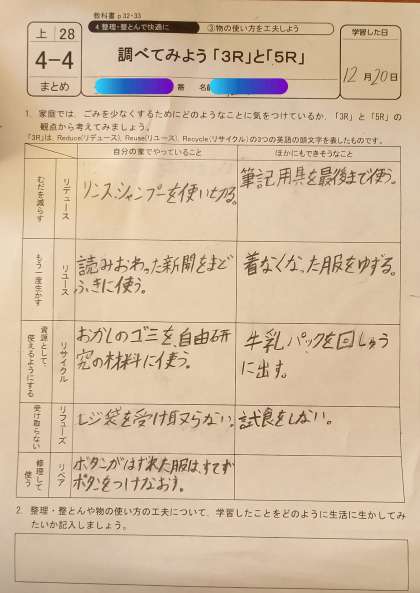 教科書 p.32・33
上 28
4 整理・整とんで快適に
③物の使い方を工夫しよう
学習した日
4-4
まとめ
調べてみよう「3R」と「5R」
番 名前
12月20日
1. 家庭では、ごみを少なくするためにどのようなことに気をつけているか、「3R」と「5R」の
観点から考えてみましょう。
「3R」は、Reduce(リデュース)、Reuse(リユース)、Recycle(リサイクル)の3つの英語の頭文字を表したものです。
自分の家でやっていること
ほかにもできそうなこと
むだを減らす
リデュース
リンスシャンプーを使い切る。
筆記用具を最後まで使う。
もう一度生かす
リユース
読みおわった新聞をまど
ふきに使う。
着なくなった服をゆずる。
資源として
使えるようにする
リサイクル
おかしのゴミを、自由研
究の材料に使う。
牛乳パックを回しゅう
に出す。
受け取らない
リフューズ
レジ袋を受け取らない。
試食をしない。
修理して
使う
リペア
ボタンがはずれた服は、すてず
ボタンをつけなおす。
2. 整理・整とんや物の使い方の工夫について、学習したことをどのように生活に生かしてみ
たいか記入しましょう。